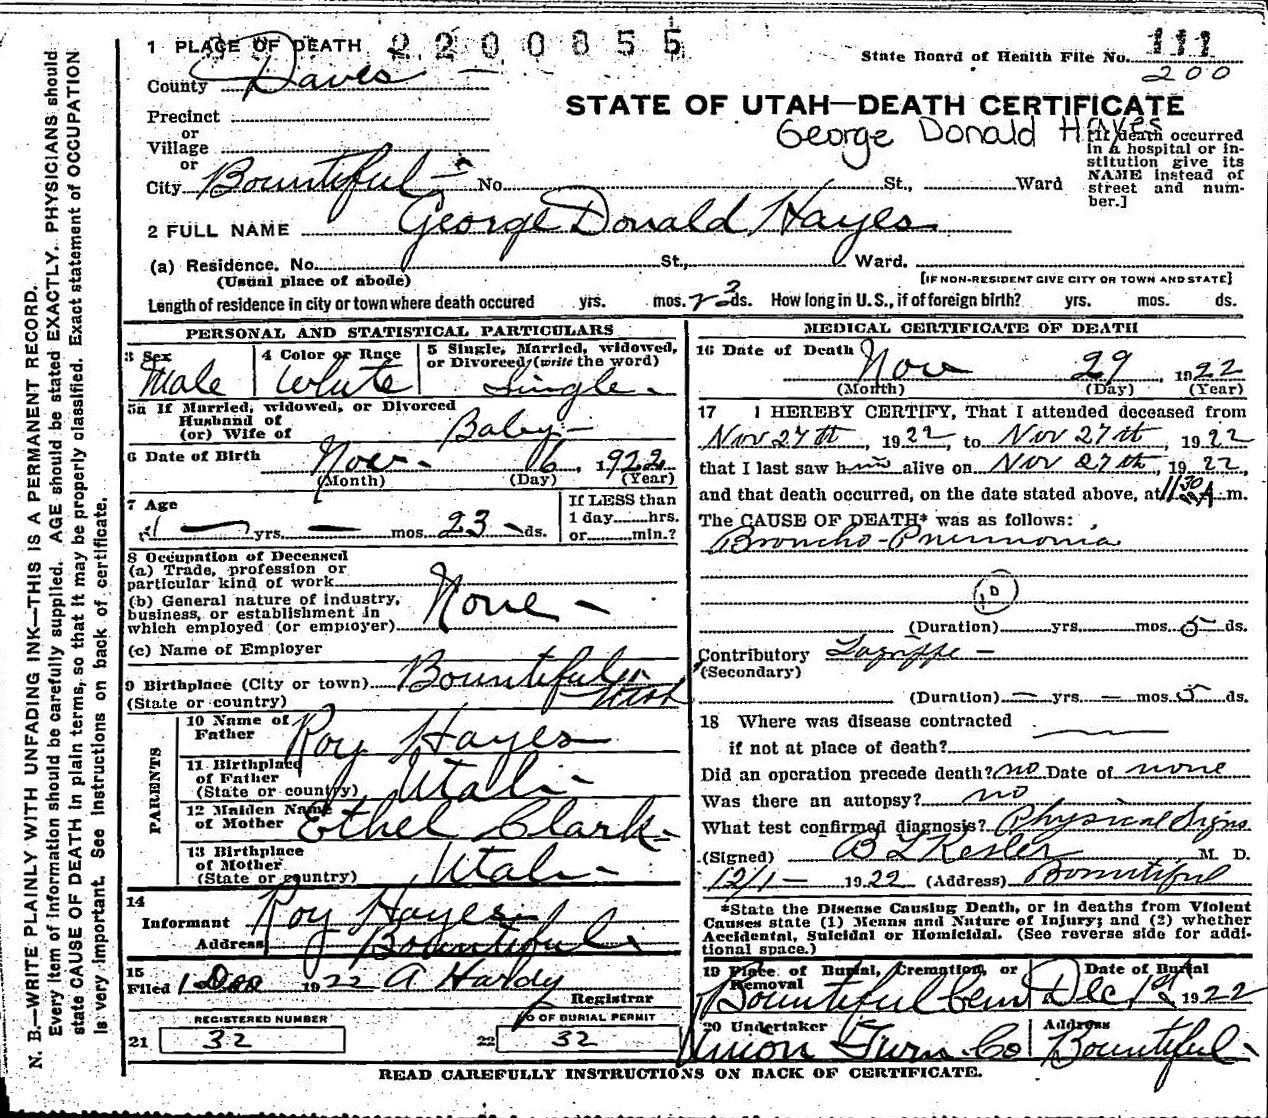 1 PLACE OF DEATH 2200855
State Board of Health File No. 111
200
County Daves
STATE OF UTAH—DEATH CERTIFICATE
George Donald Hayes
Precinct
or
Village
or
City Bountiful No. St., Ward
[If death occurred
in a hospital or in-
stitution give its
NAME instead of
street and num-
ber.]
2 FULL NAME George Donald Hayes
(a) Residence. No. St., Ward.
(Usual place of abode)
[IF NON-RESIDENT GIVE CITY OR TOWN AND STATE]
Length of residence in city or town where death occured yrs. mos. 23 ds. How long in U.S., if of foreign birth? yrs. mos. ds.
PERSONAL AND STATISTICAL PARTICULARS
3 Sex
Male
4 Color or Race
White
5 Single, Married, widowed,
or Divorced (write the word)
Single
5a If Married, widowed, or Divorced
Husband of
(or) Wife of Baby
6 Date of Birth Nov. 6, 1922
(Month) (Day) (Year)
7 Age
yrs. — mos. 23 ds.
If LESS than
1 day hrs.
or min.?
8 Occupation of Deceased
(a) Trade, profession or
particular kind of work
(b) General nature of industry,
business, or establishment in
which employed (or employer) None
(c) Name of Employer
9 Birthplace (City or town) Bountiful
(State or country) Utah
PARENTS
10 Name of
Father Roy Hayes
11 Birthplace
of Father
(State or country) Utah
12 Maiden Name
of Mother Ethel Clark
13 Birthplace
of Mother
(State or country) Utah
14
Informant Roy Hayes
Address Bountiful
15
Filed 1 Dec 1922 A Hardy
Registrar
REGISTERED NUMBER
21 32
NO OF BURIAL PERMIT
22 32
MEDICAL CERTIFICATE OF DEATH
16 Date of Death Nov 29, 1922
(Month) (Day) (Year)
17 I HEREBY CERTIFY, That I attended deceased from
Nov 27th, 1922, to Nov 27th, 1922
that I last saw him alive on Nov 27th, 1922,
and that death occurred, on the date stated above, at 11 30 A m.
The CAUSE OF DEATH* was as follows:
Broncho-Pneumonia
(Duration) yrs. mos. 5 ds.
Contributory Lagrippe —
(Secondary)
(Duration) — yrs. — mos. 5 ds.
18 Where was disease contracted
if not at place of death?
Did an operation precede death? no Date of none
Was there an autopsy? no
What test confirmed diagnosis? Physical Signs
(Signed) B L Kesler M. D.
12/1 — 1922 (Address) Bountiful
*State the Disease Causing Death, or in deaths from Violent
Causes state (1) Means and Nature of Injury; and (2) whether
Accidental, Suicidal or Homicidal. (See reverse side for addi-
tional space.)
19 Place of Burial, Cremation, or
Removal
Bountiful Cem
Date of Burial
Dec 1st 1922
20 Undertaker
Union Furn. Co
Address
Bountiful
READ CAREFULLY INSTRUCTIONS ON BACK OF CERTIFICATE.
N. B.—WRITE PLAINLY WITH UNFADING INK—THIS IS A PERMANENT RECORD.
Every item of information should be carefully supplied. AGE should be stated EXACTLY. PHYSICIANS should
state CAUSE OF DEATH in plain terms, so that it may be properly classified. Exact statement of OCCUPATION
is very important. See instructions on back of certificate.